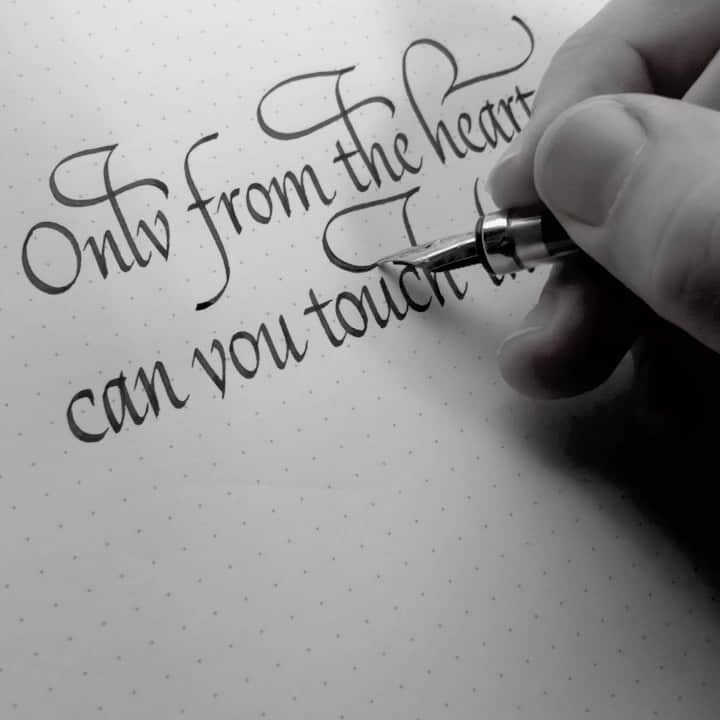 Only from the heart
can you touch